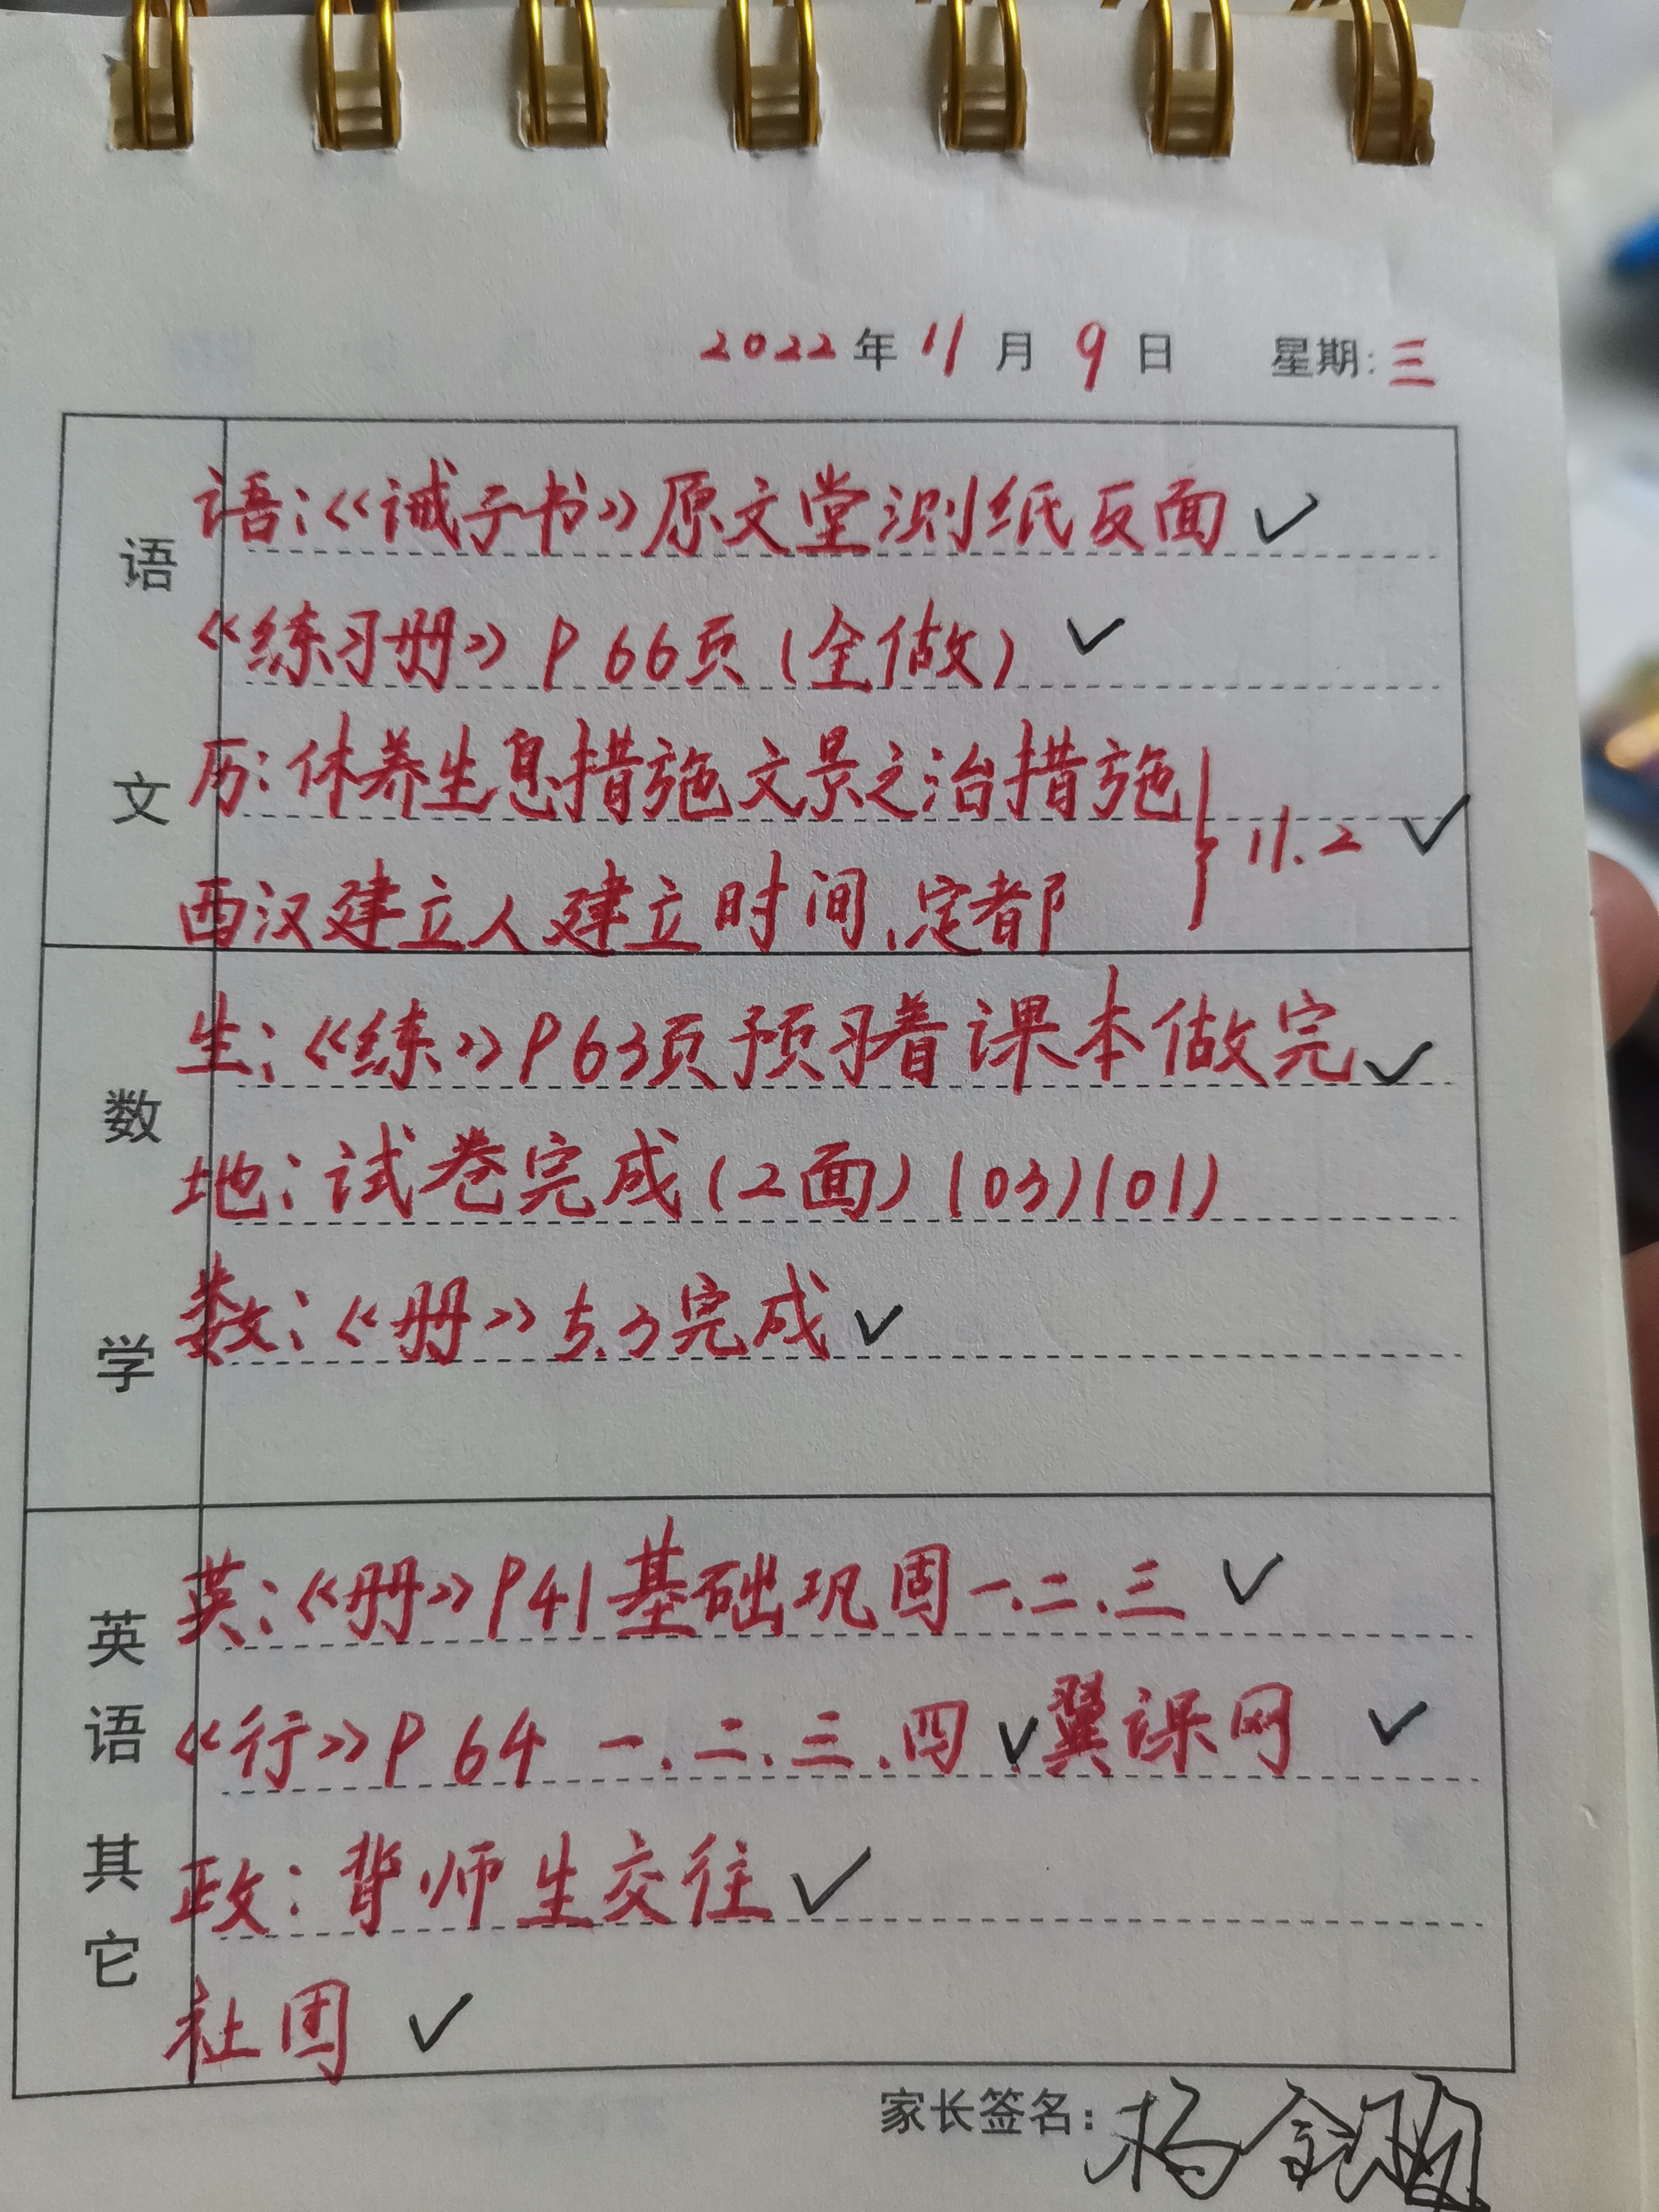 2022年11月9日 星期:三
语文
语:《诫子书》原文堂测纸反面✓
《练习册》P66页(全做)✓
历:休养生息措施文景之治措施
西汉建立人建立时间、定都 } 11.2 ✓
数学
生:《练》P63页预习看课本做完✓
地:试卷完成(2面)(03)(01)
数:《册》5.3完成✓
英语其它
英:《册》P41基础巩固一.二.三✓
《行》P64 一.二.三.四✓翼课网✓
政:背师生交往✓
社团✓
家长签名: